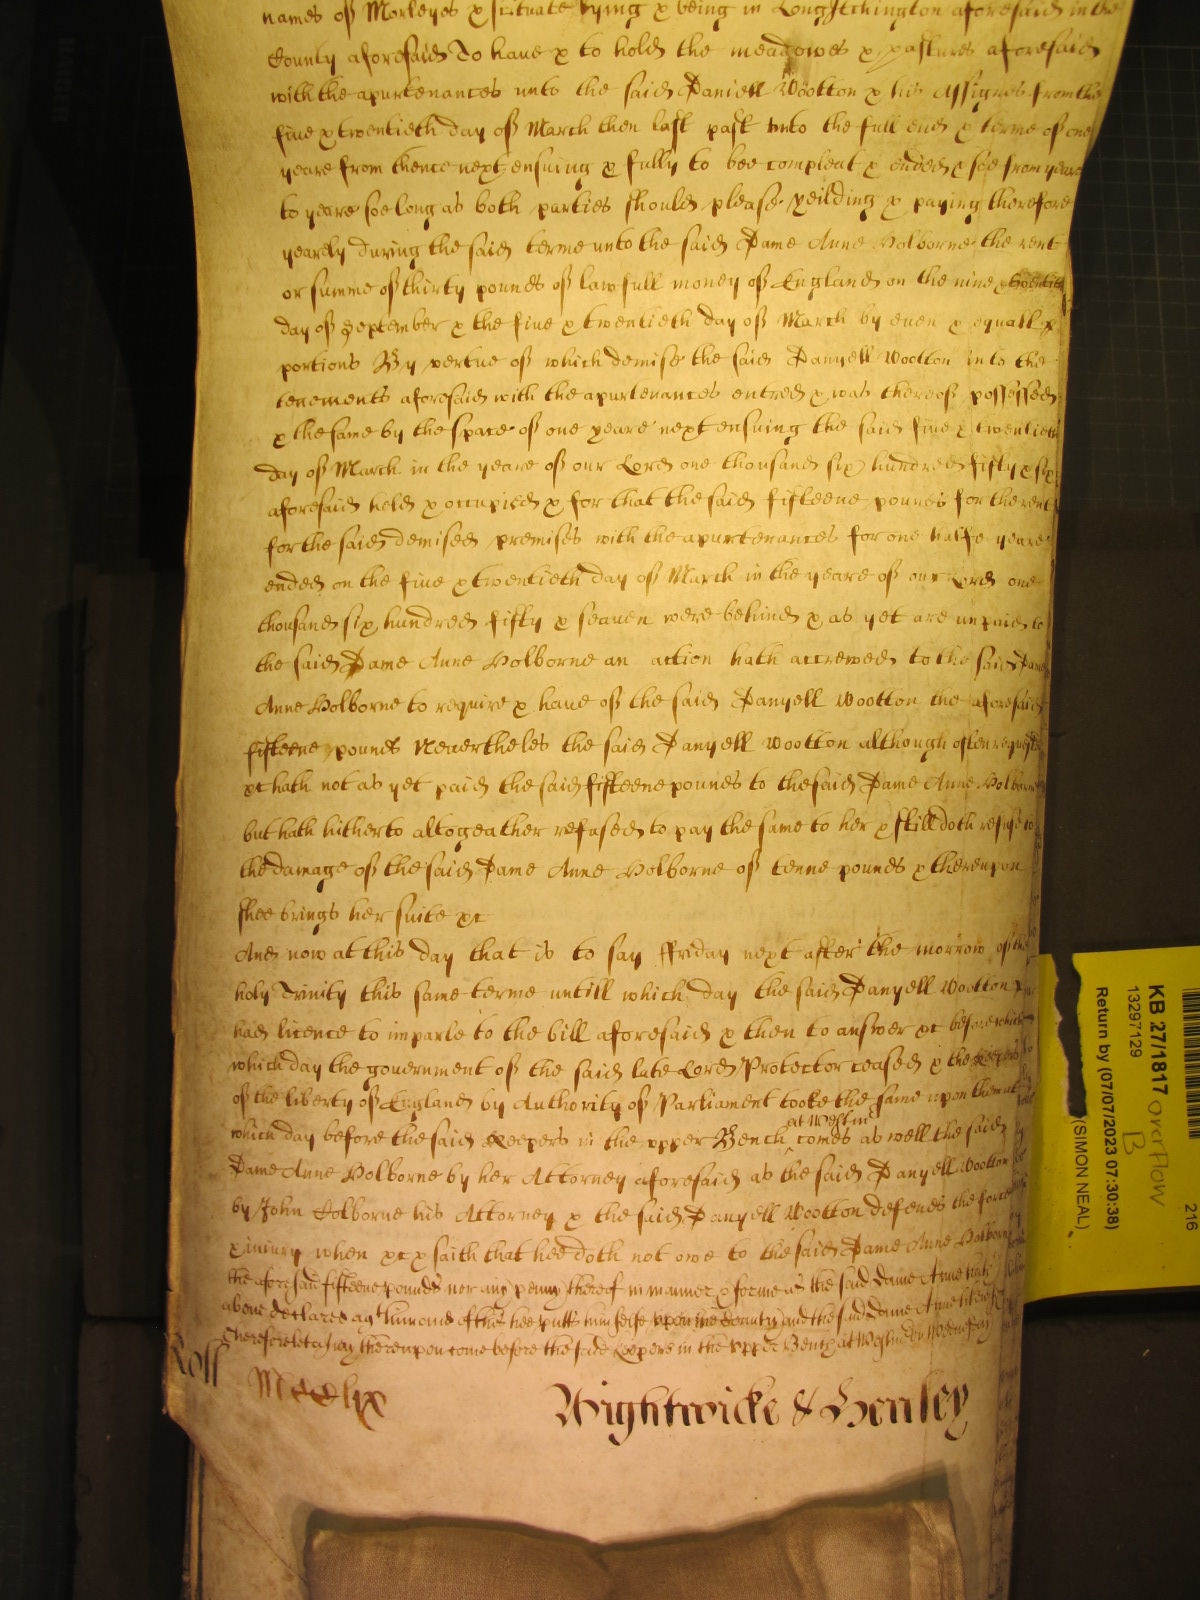 names of Morleyes & scituate lying & being in Long Itchington aforesaid in the
County aforesaid To haue & to hold the meadowes & pastures aforesaid
with the apurtenances unto the said Daniell Wootton & his Assignes from the
fiue & twentieth day of March then last past unto the full end & terme of one
yeare from thence next ensuing & fully to bee compleat & ended & soe from yeare
to yeare soe long as both parties should please yeilding & paying therefore
yearely during the said terme unto the said Dame Anne Holborne the rent
or summe of thirty pounds of lawfull money of England on the nine & twentieth
day of September & the fiue & twentieth day of March by euen & equall
portions By vertue of which demise the said Danyell Wootton into the
tenements aforesaid with the apurtenances entred & was thereof possessed
& the same by the space of one yeare next ensuing the said fiue & twentieth
day of March in the yeare of our Lord one thousand six hundred fifty & six
aforesaid held & occupied & for that the said fifteene pounds for the rent
for the said demised premises with the apurtenances for one halfe yeare
ended on the fiue & twentieth day of March in the yeare of our Lord one
thousand six hundred fifty & seauen were behind & as yet are unpaid to
the said Dame Anne Holborne an action hath accrewed to the said Dame
Anne Holborne to require & haue of the said Danyell Wootton the aforesaid
fifteene pounds Neuertheles the said Danyell Wootton although often requested
&c hath not as yet paid the said fifteene pounds to the said Dame Anne Holborne
but hath hitherto altogeather refused to pay the same to her & still doth refuse to
the damage of the said Dame Anne Holborne of tenne pounds & thereupon
shee brings her suite &c
And now at this day that is to say ffryday next after the morrow of the
holy Trinity this same terme untill which day the said Danyell Wootton
had licence to imparle to the bill aforesaid & then to answer &c before which
which day the gouernment of the said late Lord Protector ceased & the Keepers
of the liberty of England by Authority of Parliament tooke the same upon them at
which day before the said Keepers in the upper Bench at Westm comes as well the said
Dame Anne Holborne by her Attorney aforesaid as the said Danyell Wootton
by John Colborne his Attorney & the said Danyell Wootton defends the force
& iniury when &c & saith that hee doth not owe to the said Dame Anne Holborne
the aforesaid fifteene pounds nor any penny thereof in manner & forme as the said Dame Anne hath
aboue declared agt him and of this hee putts himselfe upon the Country and the said Dame Anne likewise
Therefore let a Jury thereupon come before the said Keepers in the upper Bench at Westm on Wednesday
Roll
Mcclix
Wightwicke & Henley
KB 27/1817 overflow
B
13297129
Return by (07/07/2023 07:30:38)
(SIMON NEAL)
216